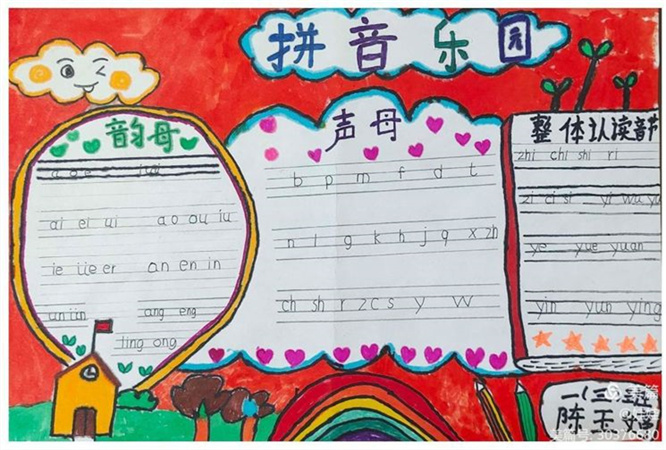 拼音乐园
韵母
a o e i u ü
ai ei ui ao ou iu
ie üe er an en in
un ün ang eng
ing ong
声母
b p m f d t
n l g k h j q x zh
ch sh r z c s y w
整体认读音节
zhi chi shi ri
zi ci si yi wu yu
ye yue yuan
yin yun ying
一(3)班
陈玉
美篇
美篇号: 30376680